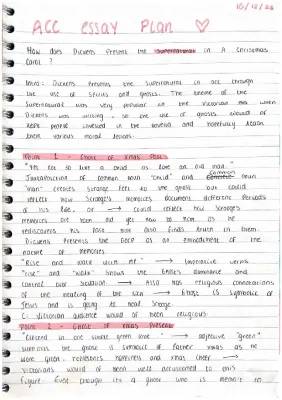 10/12/22
ACC essay Plan
How does Dickens Present the supernatural in A Christmas
Carol?
Intro: Dickens presents the supernatural in ACC through
the use of spirits and ghosts. The theme of the
supernatural was very popular in the Victorian era when
Dickens was writing, so the use of ghosts would of
kept people invested in the novella and hopefully learn
their various moral lessons.
Point 1 - Ghost of Xmas Past
like a child as like an old man."
Juxtaposition of common noun "child" and common noun
"man" creates strange feel to the ghost but could
reflect how Scrooge's memories document different periods
of his life, or → could reflect how Scrooge's
memories are now old yet new to him as he
rediscovers his past and also finds truth in them.
Dickens presents the GOCP as an embodiment of the
nature of memories.
"Rise and walk with me" → Imperative verbs
"rise" and "walk" shows the ghost's dominance and
control over situation → Also has religious connotations
of the healing of the sick → Ghost is symbolic of
Jesus and is going to heal Scrooge
C: Victorian audience would of been religious.
Point 2 - Ghost of Xmas Present
"Clothed in one simple green robe" → adjective "green"
suggests the ghost is symbolic of Father Xmas as he
wore green, represents happiness and Xmas cheer →
Victorians would of been well accustomed to this
figure. Even though it's a ghost who is meant to